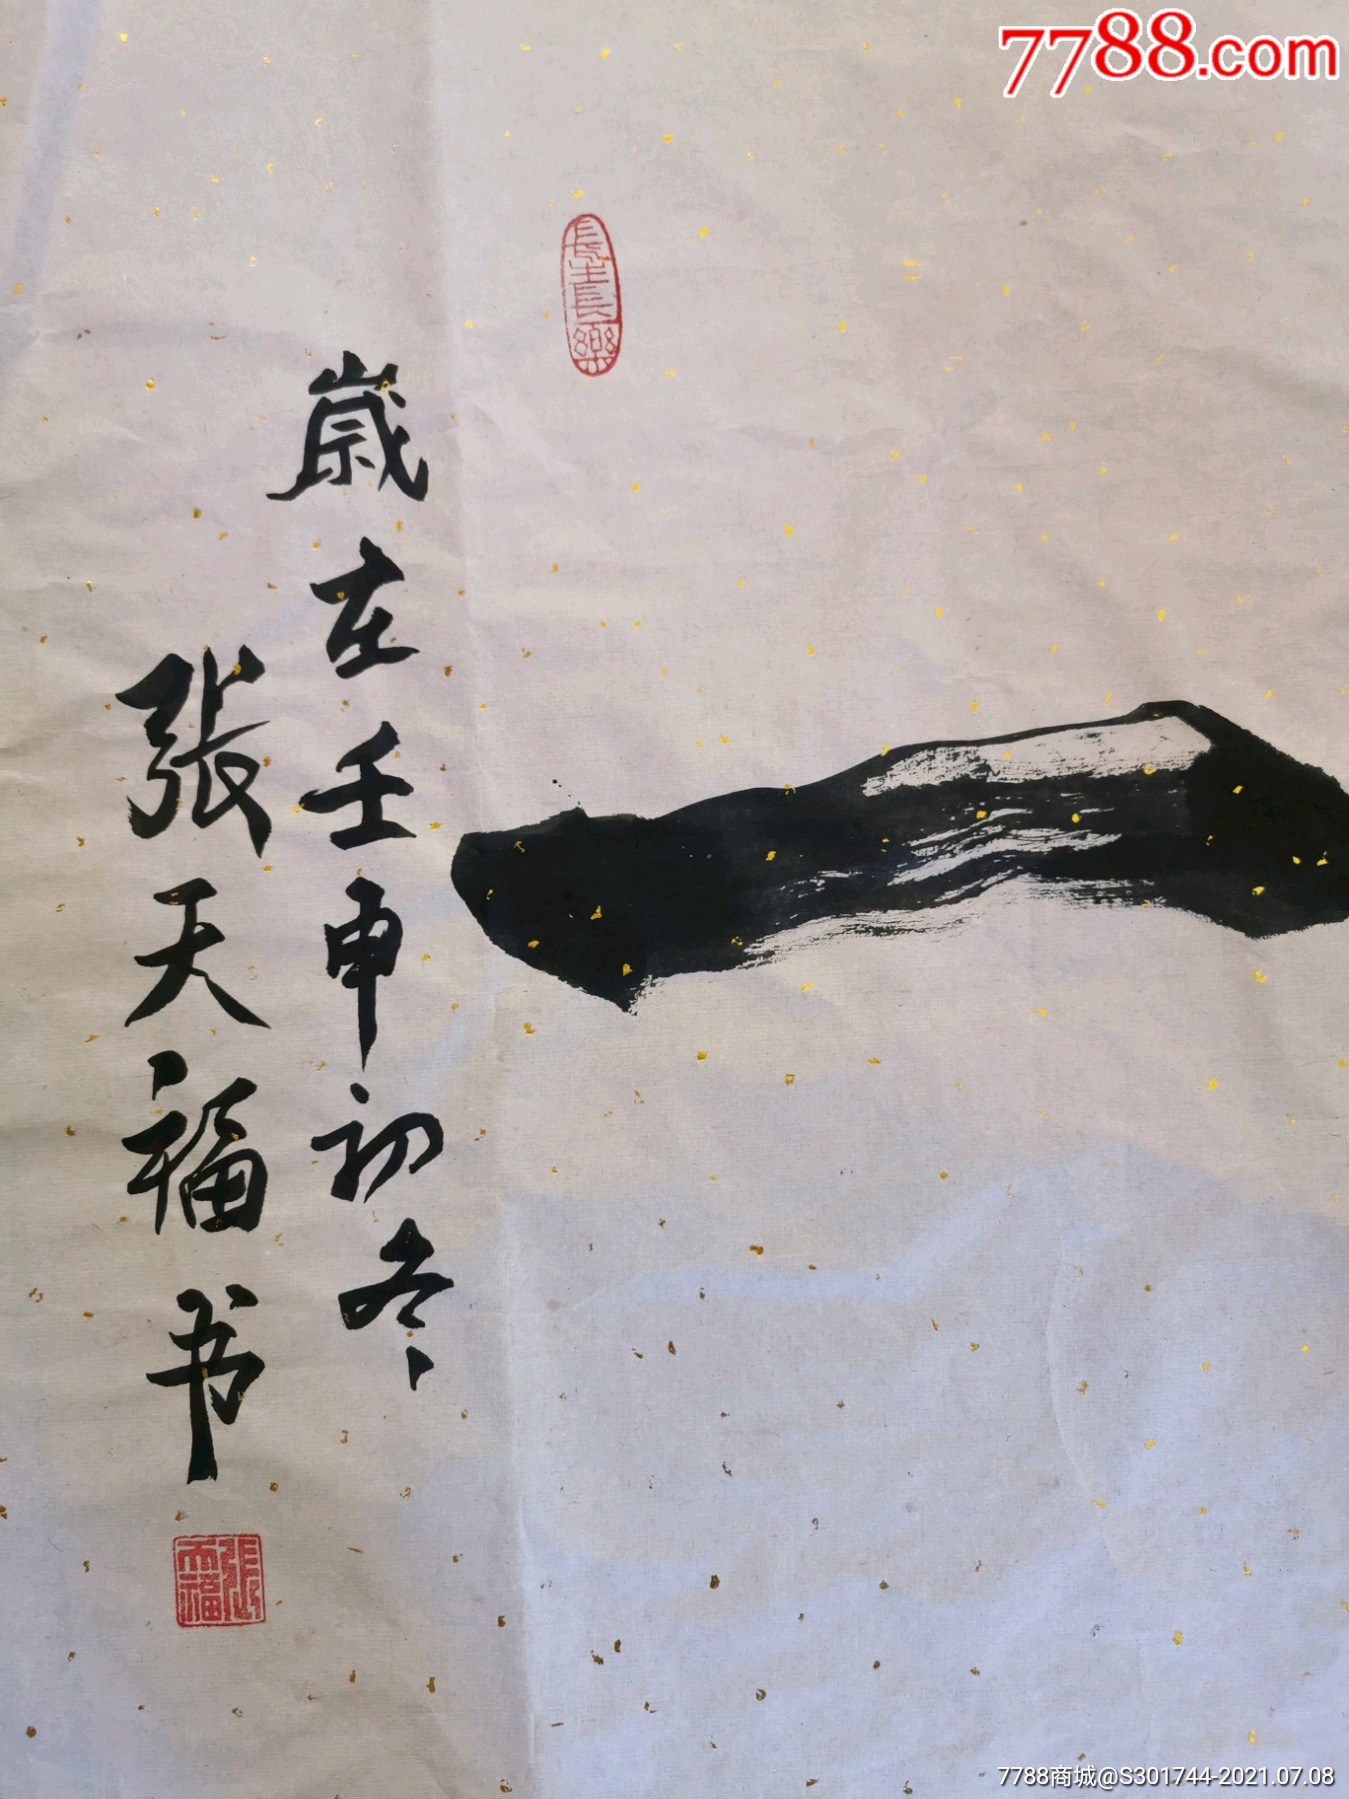 7788.com
長生長樂
歲在壬申初冬
張天福书
張天福
7788商城@S301744-2021.07.08